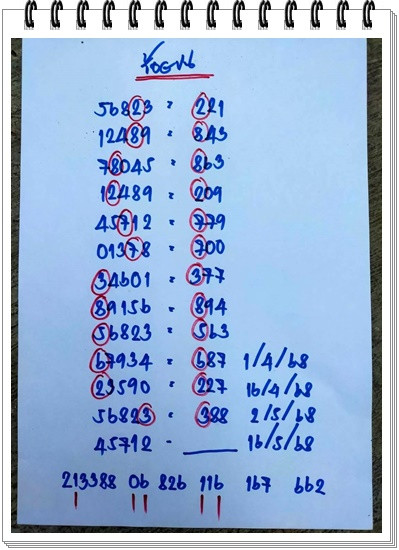 ร้อยบน
56823 = 221
12489 = 843
78045 = 863
12489 = 209
45712 = 779
01378 = 700
34601 = 377
89156 = 894
56823 = 563
67934 = 687 1/4/68
23590 = 227 16/4/68
56823 = 388 2/5/68
45712 - ____ 16/5/68
213388 06 826 116 167 662